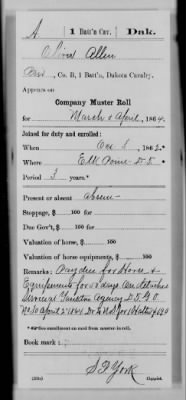 A | 1 Batt'n Cav. | Dak.
Oliver Allen
Co. B, 1 Batt'n, Dakota Cavalry.
Appears on
Company Muster Roll
for March & April, 1864.
Joined for duty and enrolled:
When Dec 8, 1862.*
Where Elk Point D.T.
Period 3 years.*
Present or absent absent
Stoppage, $ 100 for
Due Gov't, $ 100 for
Valuation of horse, $ 100
Valuation of horse equipments, $ 100
Remarks: Pay due for Horse &
Equipments for days On detached
Service Yancton Agency D.T. G O
No 10 April 2 1864
*See enrollment on card from muster-in roll.
Book mark:
S F York
(358) Copyist.